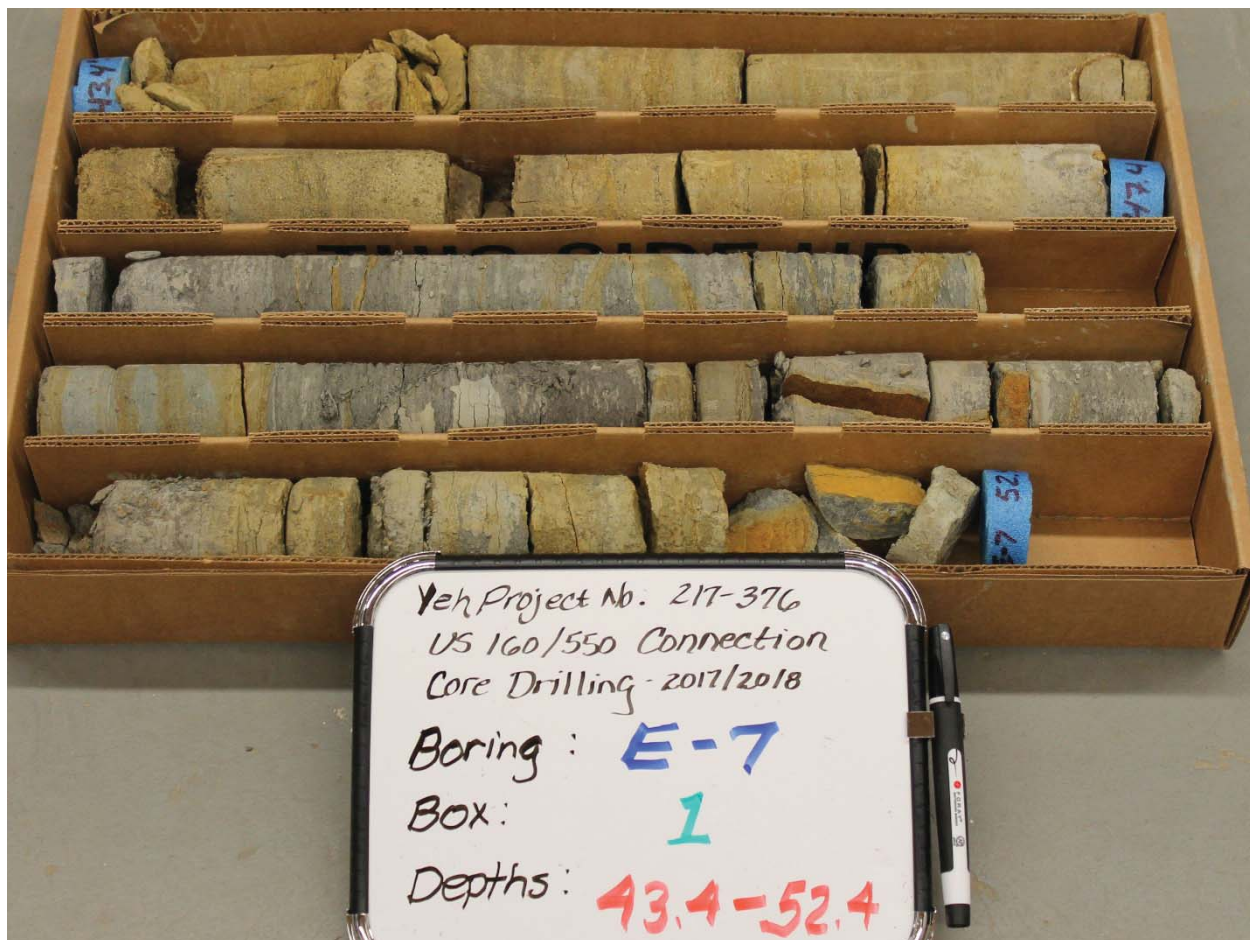 43.4
47.4
THIS SIDE UP
E-7 52.
Yeh Project No. 217-376
US 160/550 Connection
Core Drilling - 2017/2018
Boring: E-7
Box: 1
Depths: 43.4-52.4
FORAY